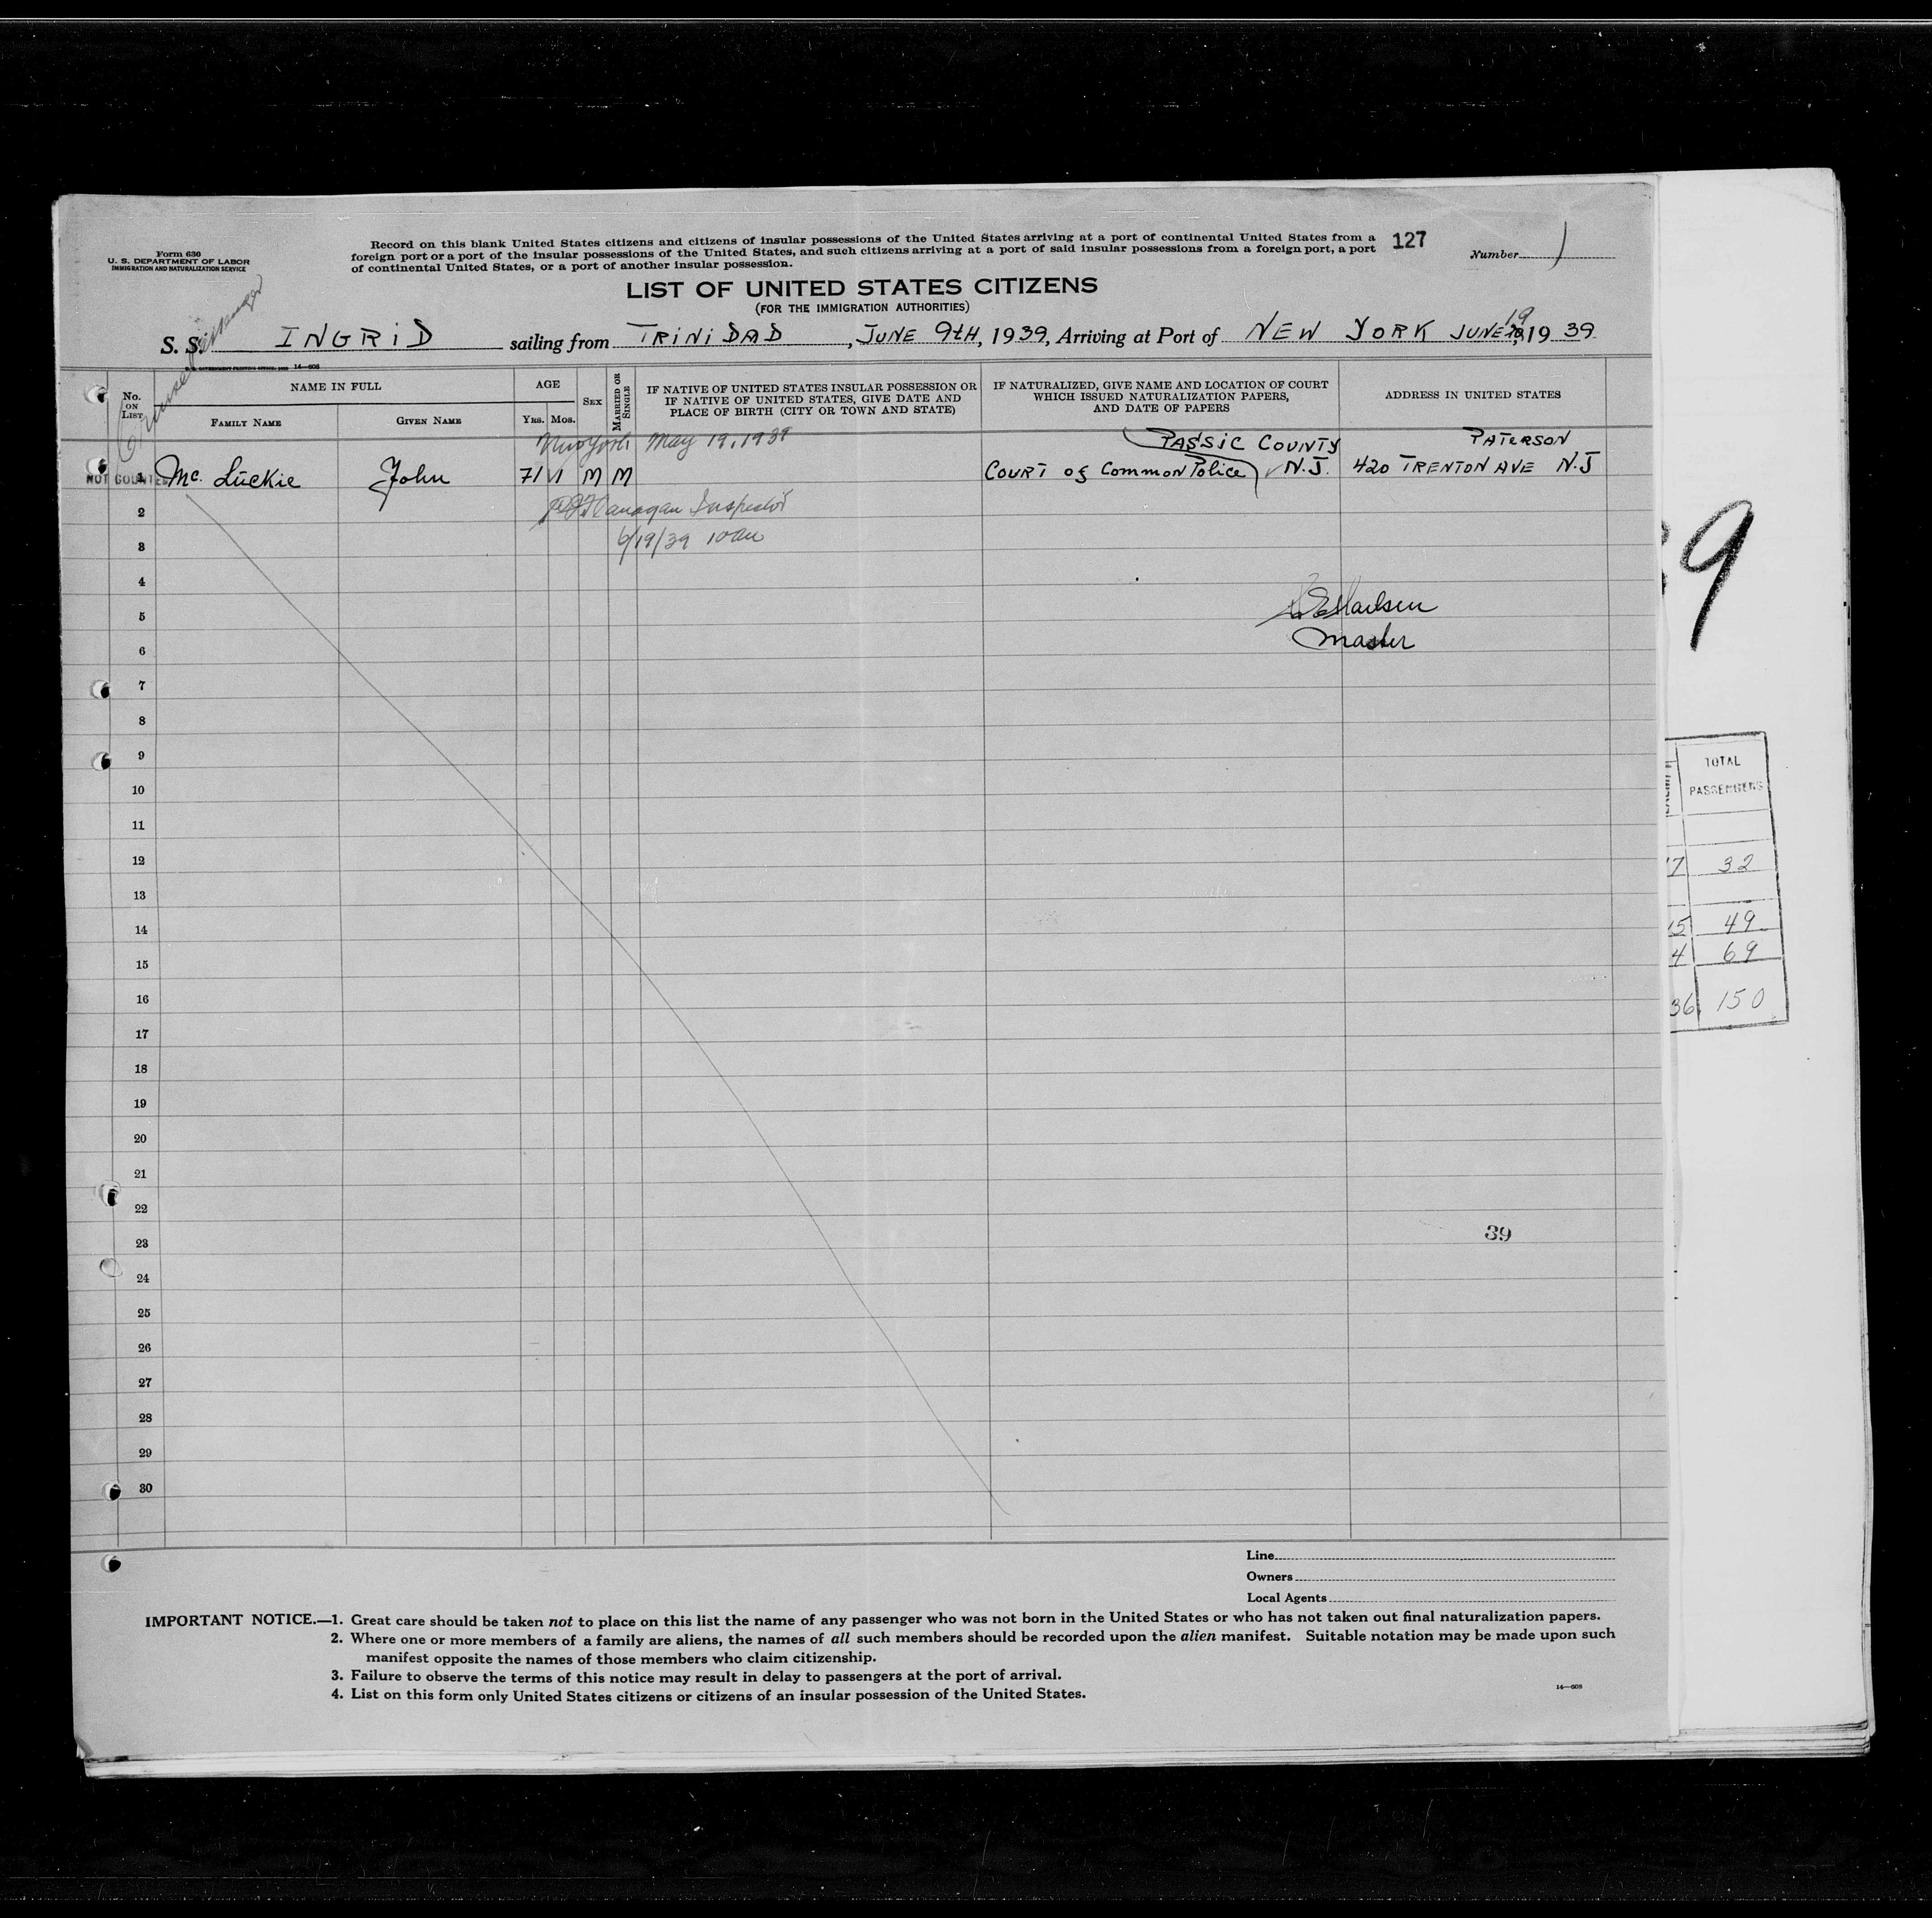 Form 630
U. S. DEPARTMENT OF LABOR
IMMIGRATION AND NATURALIZATION SERVICE
Record on this blank United States citizens and citizens of insular possessions of the United States arriving at a port of continental United States from a
foreign port or a port of the insular possessions of the United States, and such citizens arriving at a port of said insular possessions from a foreign port, a port
of continental United States, or a port of another insular possession.
127
Number 1
LIST OF UNITED STATES CITIZENS
(FOR THE IMMIGRATION AUTHORITIES)
S. S. INGRID sailing from TRINIDAD, JUNE 9tH, 1939, Arriving at Port of NEW YORK JUNE 19, 1939
14—608
No. ON LIST
NAME IN FULL
FAMILY NAME
GIVEN NAME
AGE
Yrs. Mos.
SEX
MARRIED OR SINGLE
IF NATIVE OF UNITED STATES INSULAR POSSESSION OR
IF NATIVE OF UNITED STATES, GIVE DATE AND
PLACE OF BIRTH (CITY OR TOWN AND STATE)
IF NATURALIZED, GIVE NAME AND LOCATION OF COURT
WHICH ISSUED NATURALIZATION PAPERS,
AND DATE OF PAPERS
ADDRESS IN UNITED STATES
New York May 19, 1939
PASSIC COUNTY
PATERSON
NOT COUNTED
1 Mc. Luckie John 71 1 M M COURT of Common Police N.J. 420 TRENTON AVE N.J
2 Flanagan Inspector
3 6/19/39 10am
4
5
6 Master
7
8
9
10
11
12
13
14
15
16
17
18
19
20
21
22
23 39
24
25
26
27
28
29
30
Line
Owners
Local Agents
IMPORTANT NOTICE.—1. Great care should be taken not to place on this list the name of any passenger who was not born in the United States or who has not taken out final naturalization papers.
2. Where one or more members of a family are aliens, the names of all such members should be recorded upon the alien manifest. Suitable notation may be made upon such
manifest opposite the names of those members who claim citizenship.
3. Failure to observe the terms of this notice may result in delay to passengers at the port of arrival.
4. List on this form only United States citizens or citizens of an insular possession of the United States.
14—608
9
TOTAL
PASSENGERS
7 32
15 49
4 69
36 150